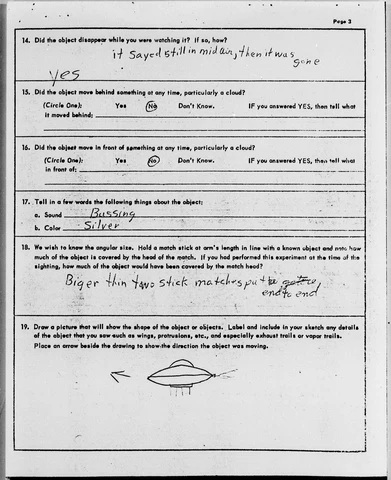 Page 3
14. Did the object disappear while you were watching it? If so, how?
it sayed still in mid air, then it was
gone
yes
15. Did the object move behind something at any time, particularly a cloud?
(Circle One): Yes No Don't Know. IF you answered YES, then tell what
it moved behind:
16. Did the object move in front of something at any time, particularly a cloud?
(Circle One): Yes No Don't Know. IF you answered YES, then tell what
in front of:
17. Tell in a few words the following things about the object:
a. Sound Bussing
b. Color Silver
18. We wish to know the angular size. Hold a match stick at arm's length in line with a known object and note how
much of the object is covered by the head of the match. If you had performed this experiment at the time of the
sighting, how much of the object would have been covered by the match head?
Biger thin two stick matches put
end to end
19. Draw a picture that will show the shape of the object or objects. Label and include in your sketch any details
of the object that you saw such as wings, protrusions, etc., and especially exhaust trails or vapor trails.
Place an arrow beside the drawing to show the direction the object was moving.